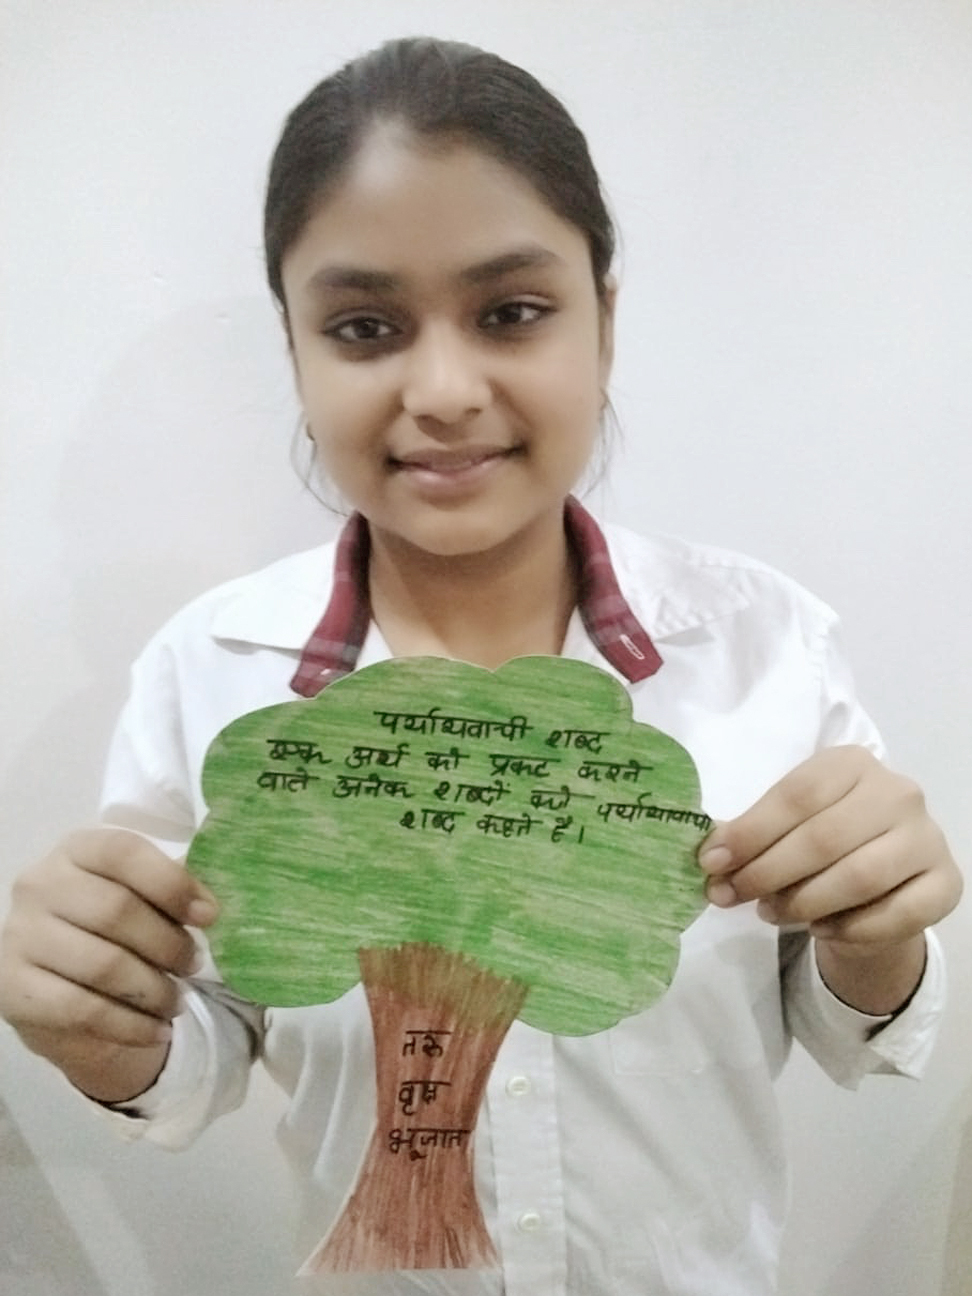 पर्यायवाची शब्द
एक अर्थ को प्रकट करने
वाले अनेक शब्दों को पर्यायवाची
शब्द कहते है।
तरू
वृक्ष
भूजात